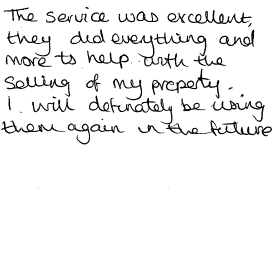 The service was excellent,
they did everything and
more to help with the
selling of my property.
I will definately be using
them again in the future